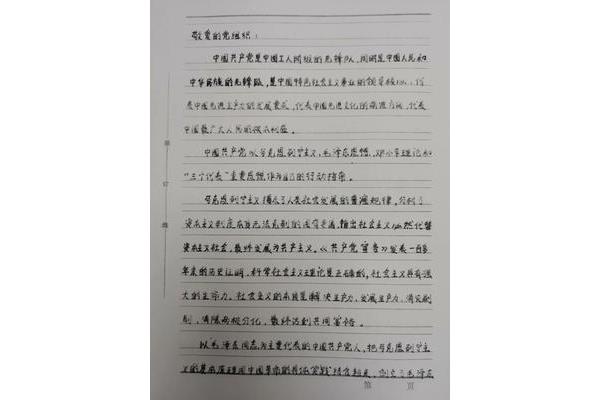 敬爱的党组织：
中国共产党是中国工人阶级的先锋队，同时是中国人民和
中华民族的先锋队，是中国特色社会主义事业的领导核心，代
表中国先进生产力的发展要求，代表中国先进文化的前进方向，代表
中国最广大人民的根本利益。
中国共产党以马克思列宁主义、毛泽东思想、邓小平理论和
“三个代表”重要思想作为自己的行动指南。
马克思列宁主义揭示了人类社会发展的普遍规律，分析了
资本主义制度本身无法克服的固有矛盾，指出社会主义必然代替
资本主义社会，最终发展为共产主义。《共产党宣言》发表一百多
年来的历史证明，科学社会主义理论是正确的，社会主义具有强
大的生命力。社会主义的本质是解决生产力，发展生产力，消灭剥
削，消除两极分化，最终达到共同富裕。
以毛泽东同志为主要代表的中国共产党人，把马克思列宁主
义的基本原理同中国革命的具体实践结合起来，创立了毛泽东
装
订
线
第 页